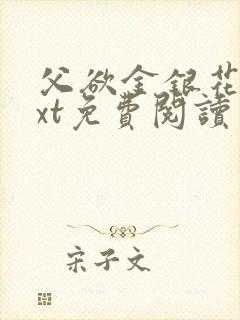 父欲金銀花
xt免費閱讀
宋子文